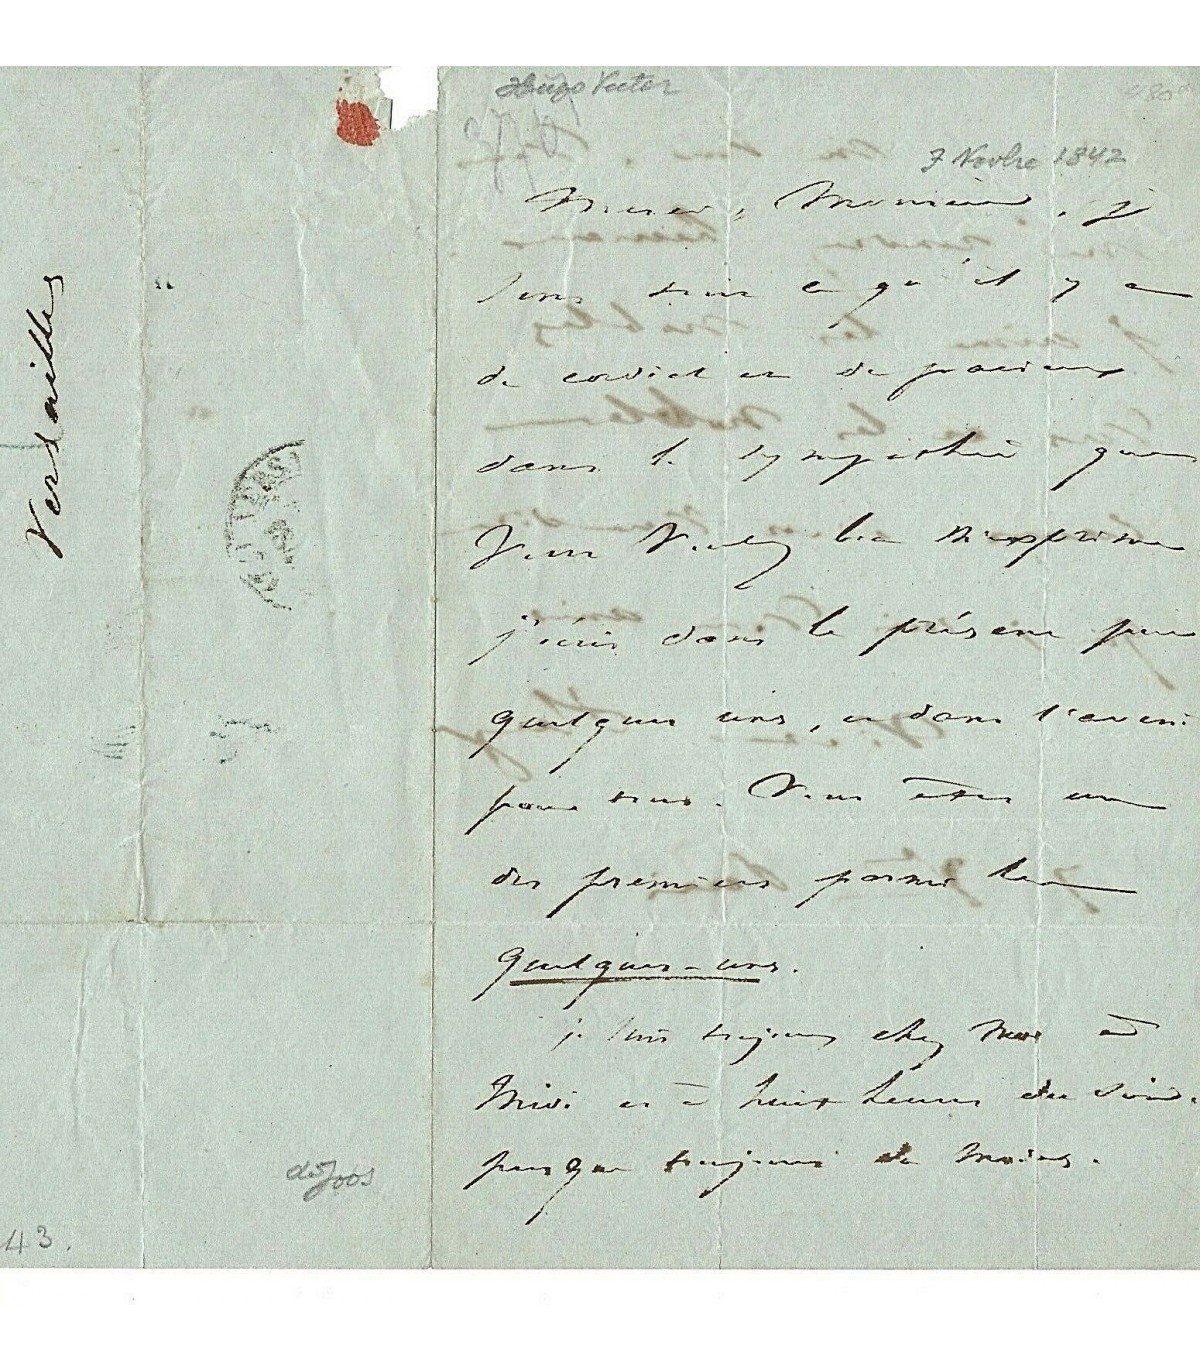 Hugo Victor
7 Novbre 1842
Merci, Monsieur, je
sens tout ce qu'il y a
de cordial et de précieux
dans la sympathie que
vous voulez bien m'exprimer
j'écris dans le présent pour
quelques uns, et dans l'avenir
pour tous. Vous êtes un
des premiers parmi les
quelques-uns.
je suis toujours chez moi à
midi et à huit heures du soir.
presque toujours du moins.
Versailles
de Joos
43.